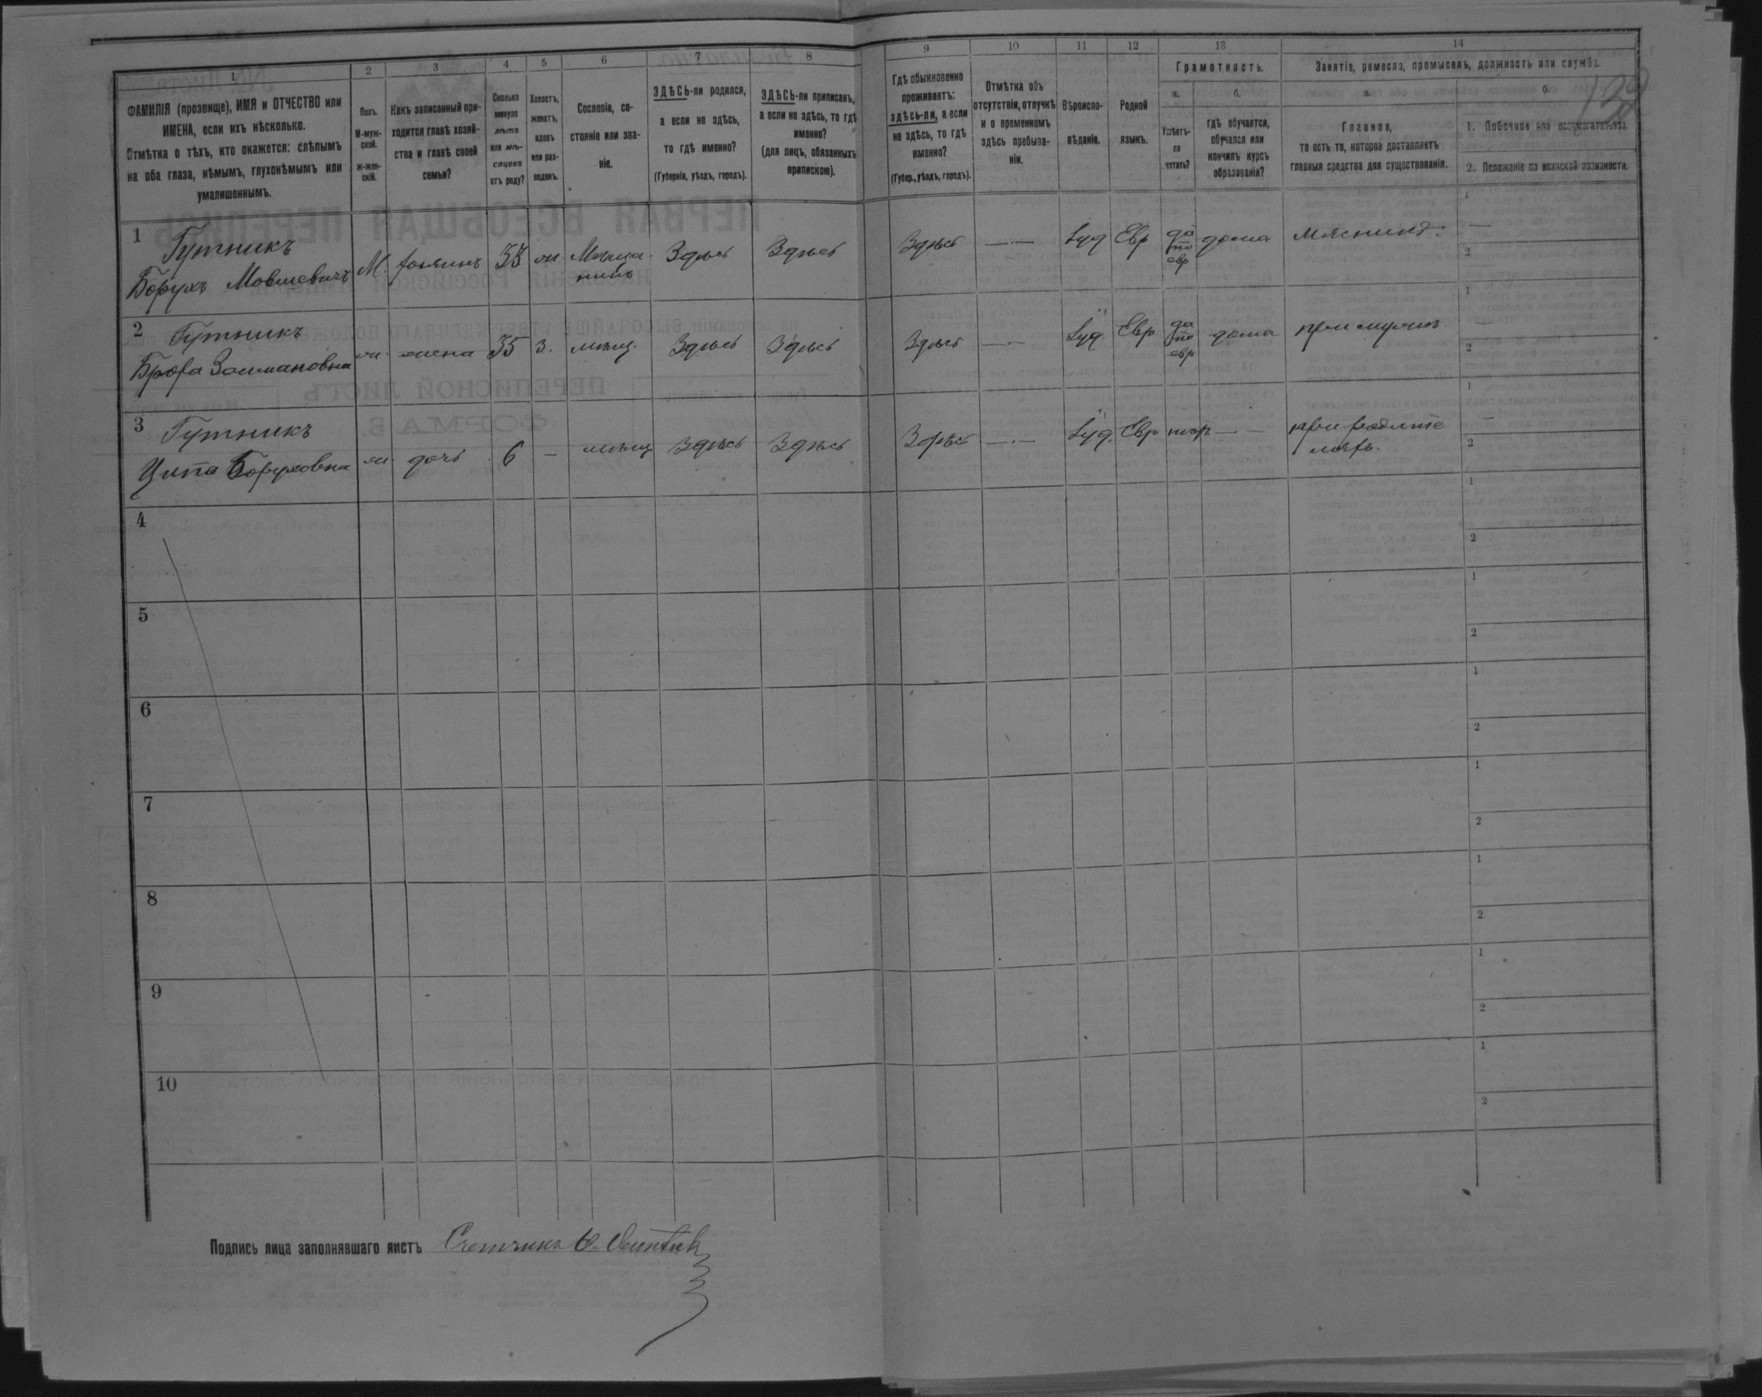 1 2 3 4 5 6 7 8 9 10 11 12 13 14
ФАМИЛІЯ (прозвище), ИМЯ и ОТЧЕСТВО или
ИМЕНА, если ихъ нѣсколько.
Отмѣтка о тѣхъ, кто окажется: слѣпымъ
на оба глаза, нѣмымъ, глухонѣмымъ или
умалишеннымъ.
Полъ.
М-муж-
ской.
ж-жен-
скій.
Какъ записанный при-
ходится главѣ хозяй-
ства и главѣ своей
семьи?
Сколько
минуло
лѣтъ
или мѣ-
сяцевъ
отъ роду?
Холостъ,
женатъ,
вдовъ
или раз-
веденъ.
Сословіе, со-
стояніе или зва-
ніе.
ЗДѢСЬ-ли родился,
а если не здѣсь,
то гдѣ именно?
(Губернія, уѣздъ, городъ).
ЗДѢСЬ-ли приписанъ,
а если не здѣсь, то гдѣ
именно?
(для лицъ, обязанныхъ
припискою).
Гдѣ обыкновенно
проживаетъ:
здѣсь-ли, а если
не здѣсь, то гдѣ
именно?
(Губер., уѣздъ, городъ).
Отмѣтка объ
отсутствіи, отлучкѣ
и о временномъ
здѣсь пребыва-
ніи.
Вѣроиспо-
вѣданіе.
Родной
языкъ.
Грамотность.
а.
Умѣетъ-
ли
читать?
б.
гдѣ обучается,
обучался или
кончилъ курсъ
образованія?
Занятіе, ремесло, промыселъ, должность или служба.
а.
Главное,
то есть то, которое доставляетъ
главныя средства для существованія.
б.
1. Побочное или вспомогательное.
2. Положеніе по воинской повинности.
1 Гутникъ
Борухъ Мовшевичъ М. хозяинъ ж Мѣща-
нинъ Здѣсь Здѣсь Здѣсь — Іуд Евр да
по
евр дома 1 —
2
2 Гутникъ
Залмановна ж. жена 35 з. мѣщ. Здѣсь Здѣсь Здѣсь — Іуд. Евр да
по
евр дома 1 —
2
3 Гутникъ
Боруховна ж. дочь 6 — мѣщ Здѣсь Здѣсь Здѣсь — Іуд. Евр — при 1 —
2
4 1
2
5 1
2
6 1
2
7 1
2
8 1
2
9 1
2
10 1
2
Подпись лица заполнявшаго листъ Счетчикъ